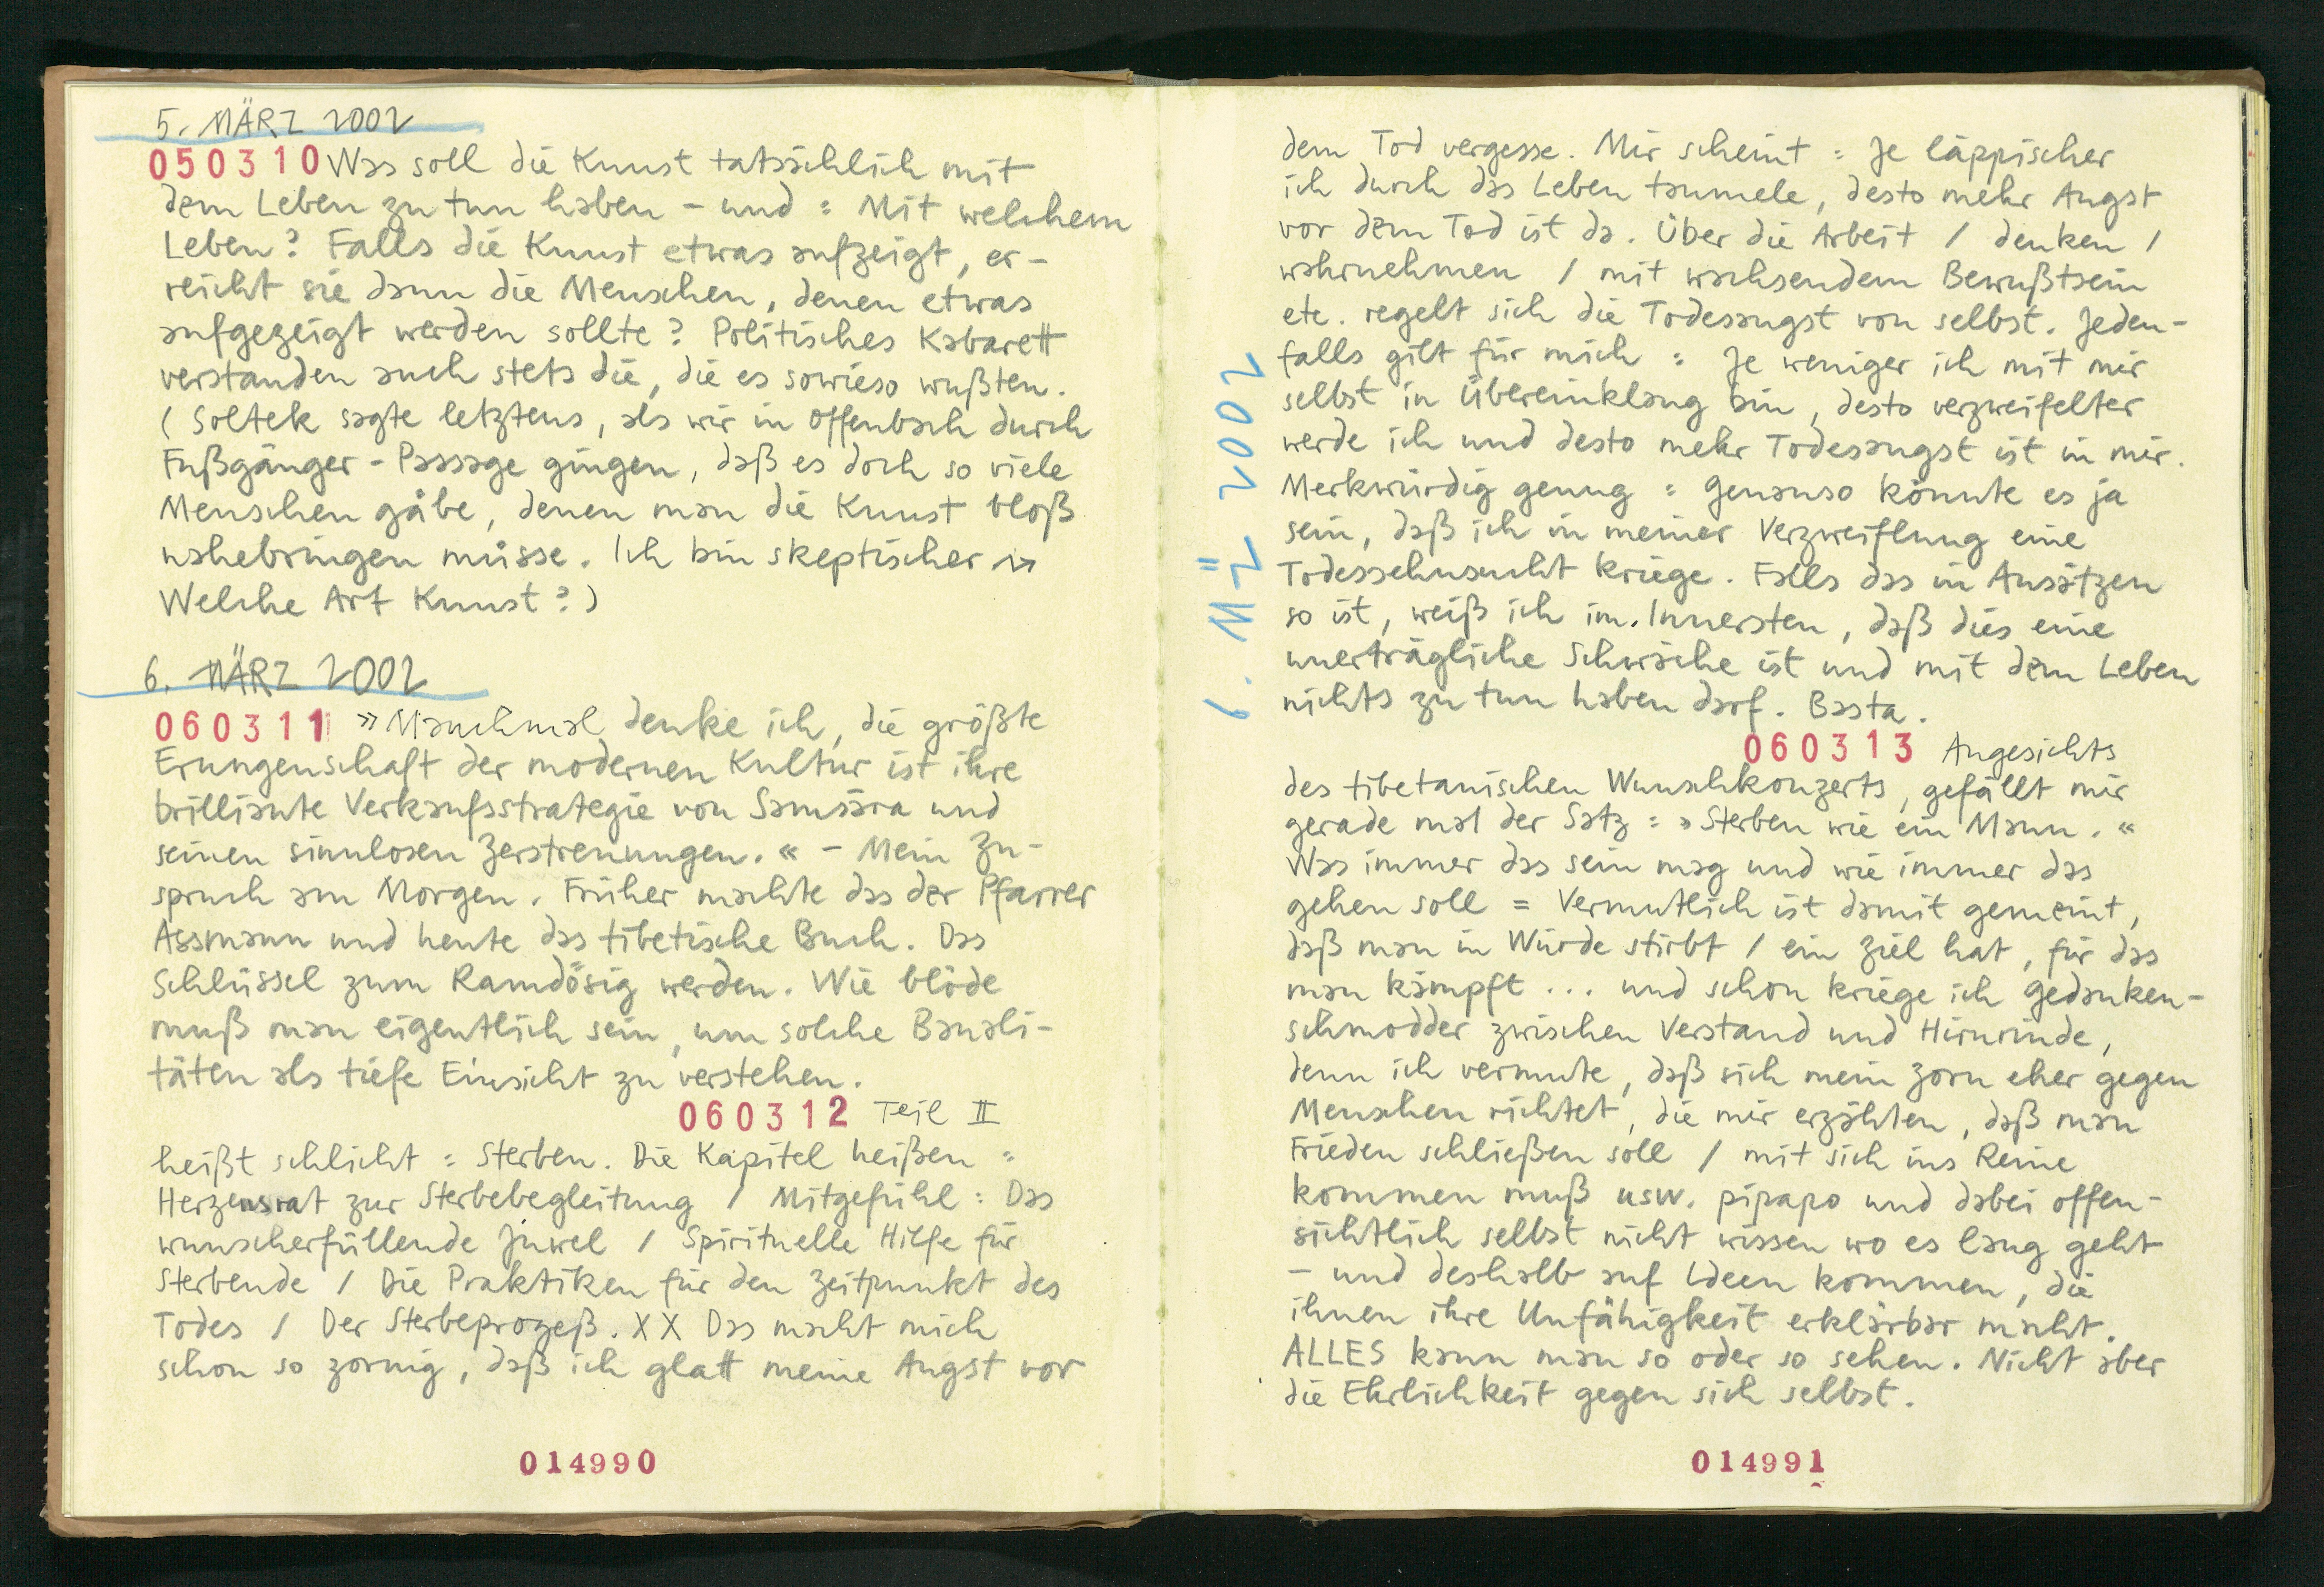 5. MÄRZ 2002
050310 Was soll die Kunst tatsächlich mit
dem Leben zu tun haben – und : Mit welchem
Leben? Falls die Kunst etwas aufzeigt, er-
reicht sie dann die Menschen, denen etwas
aufgezeigt werden sollte? Politisches Kabarett
verstanden auch stets die, die es sowieso wußten.
(Soltek sagte letztens, als wir in Offenbach durch
Fußgänger-Passage gingen, daß es doch so viele
Menschen gäbe, denen man die Kunst bloß
nahebringen müsse. Ich bin skeptischer →
Welche Art Kunst?)
6. MÄRZ 2002
060311 »Manchmal denke ich, die größte
Erungenschaft der modernen Kultur ist ihre
brilliante Verkaufsstrategie von Samsara und
seinen sinnlosen Zerstreuungen.« – Mein Zu-
spruch am Morgen. Früher machte das der Pfarrer
Assmann und heute das tibetische Buch. Das
Schlüssel zum Ramdösig werden. Wie blöde
muß man eigentlich sein, um solche Banali-
täten als tiefe Einsicht zu verstehen.
060312 Teil II
heißt schlicht : Sterben. Die Kapitel heißen :
Herzensrat zur Sterbebegleitung / Mitgefühl : Das
wunscherfüllende Juwel / Spirituelle Hilfe für
Sterbende / Die Praktiken für den Zeitpunkt des
Todes / Der Sterbeprozeß. XX Das macht mich
schon so zornig, daß ich glatt meine Angst vor
014990
6. MÄRZ 2002
dem Tod vergesse. Mir scheint : Je läppischer
ich durch das Leben taumele, desto mehr Angst
vor dem Tod ist da. Über die Arbeit / denken /
wahrnehmen / mit wachsendem Bewußtsein
etc. regelt sich die Todesangst von selbst. Jeden-
falls gilt für mich : Je weniger ich mit mir
selbst in Übereinklang bin, desto verzweifelter
werde ich und desto mehr Todesangst ist in mir.
Merkwürdig genug : Genauso könnte es ja
sein, daß ich in meiner Verzweiflung eine
Todessehnsucht kriege. Falls das in Ansätzen
so ist, weiß ich im Innersten, daß dies eine
unerträgliche Schwäche ist und mit dem Leben
nichts zu tun haben darf. Basta.
060313 Angesichts
des tibetanischen Wunschkonzerts, gefällt mir
gerade mal der Satz : »Sterben wie ein Mann.«
Was immer das sein mag und wie immer das
gehen soll = Vermutlich ist damit gemeint,
daß man in Würde stirbt / ein Ziel hat, für das
man kämpft ... und schon kriege ich Gedanken-
schmodder zwischen Verstand und Hirnrinde,
denn ich vermute, daß sich mein Zorn eher gegen
Menschen richtet, die mir erzählen, daß man
Frieden schließen soll / mit sich ins Reine
kommen muß usw. pipapo und dabei offen-
sichtlich selbst nicht wissen wo es lang geht
– und deshalb auf Ideen kommen, die
ihnen ihre Unfähigkeit erklärbar macht.
ALLES kann man so oder so sehen. Nicht aber
die Ehrlichkeit gegen sich selbst.
014991